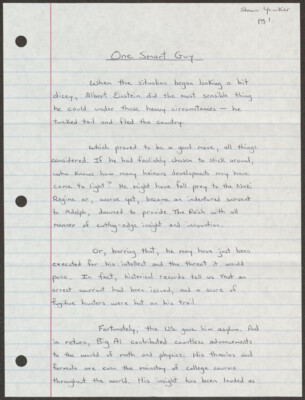 M1
One Smart Guy
When the situation began looking a bit
dicey, Albert Einstein did the most sensible thing
he could under those heavy circumstances — he
tucked tail and fled the country.
Which proved to be a good move, all things
considered. If he had foolishly chosen to stick around,
who knows how many heinous developments may have
come to light? He might have fell prey to the Nazi
Regime or, worse yet, became an indentured servant
to Adolph, doomed to provide The Reich with all
manner of cutting-edge insight and innovation.
Or, barring that, he may have just been
executed for his intellect and the threat it would
pose. In fact, historical records tell us that an
arrest warrant had been issued, and a score of
fugitive hunters were hot on his trail.
Fortunately, the US gave him asylum. And
in return, Big Al contributed countless advancements
to the world of math and physics. His theories and
formula are even the ministry of college courses
throughout the world. His insight has been lauded as